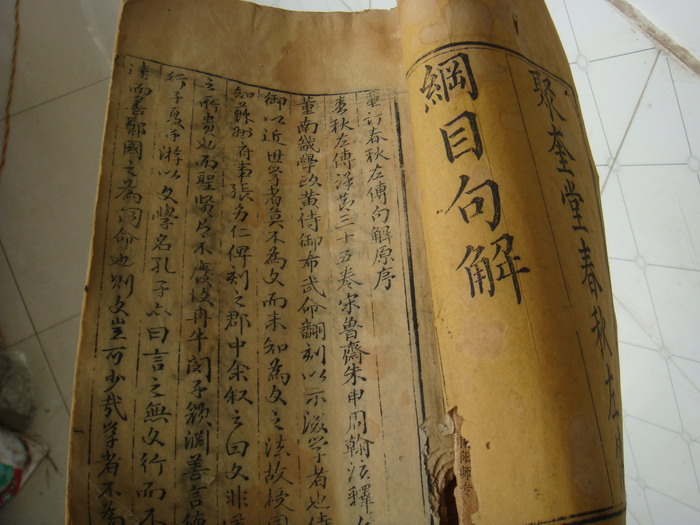 聚奎堂春秋左
綱目句解
重訂春秋左傳句解原序
春秋左傳詳節三十五卷宋魯齋朱申周翰注釋
董南畿學政黃侍御布武命翻刻以示後學者也侍
御以近世學者莫不為文而未知為文之法故授同
知蘇州府事張幼仁俾刻之郡中余叙之曰文非
之所貴也而聖賢亦不廢故冉牛閔子顏淵善言德
行子夏子游以文學名孔子亦曰言之無文行而不
遠而善鄭國之為命也則文豈可少哉學者不為